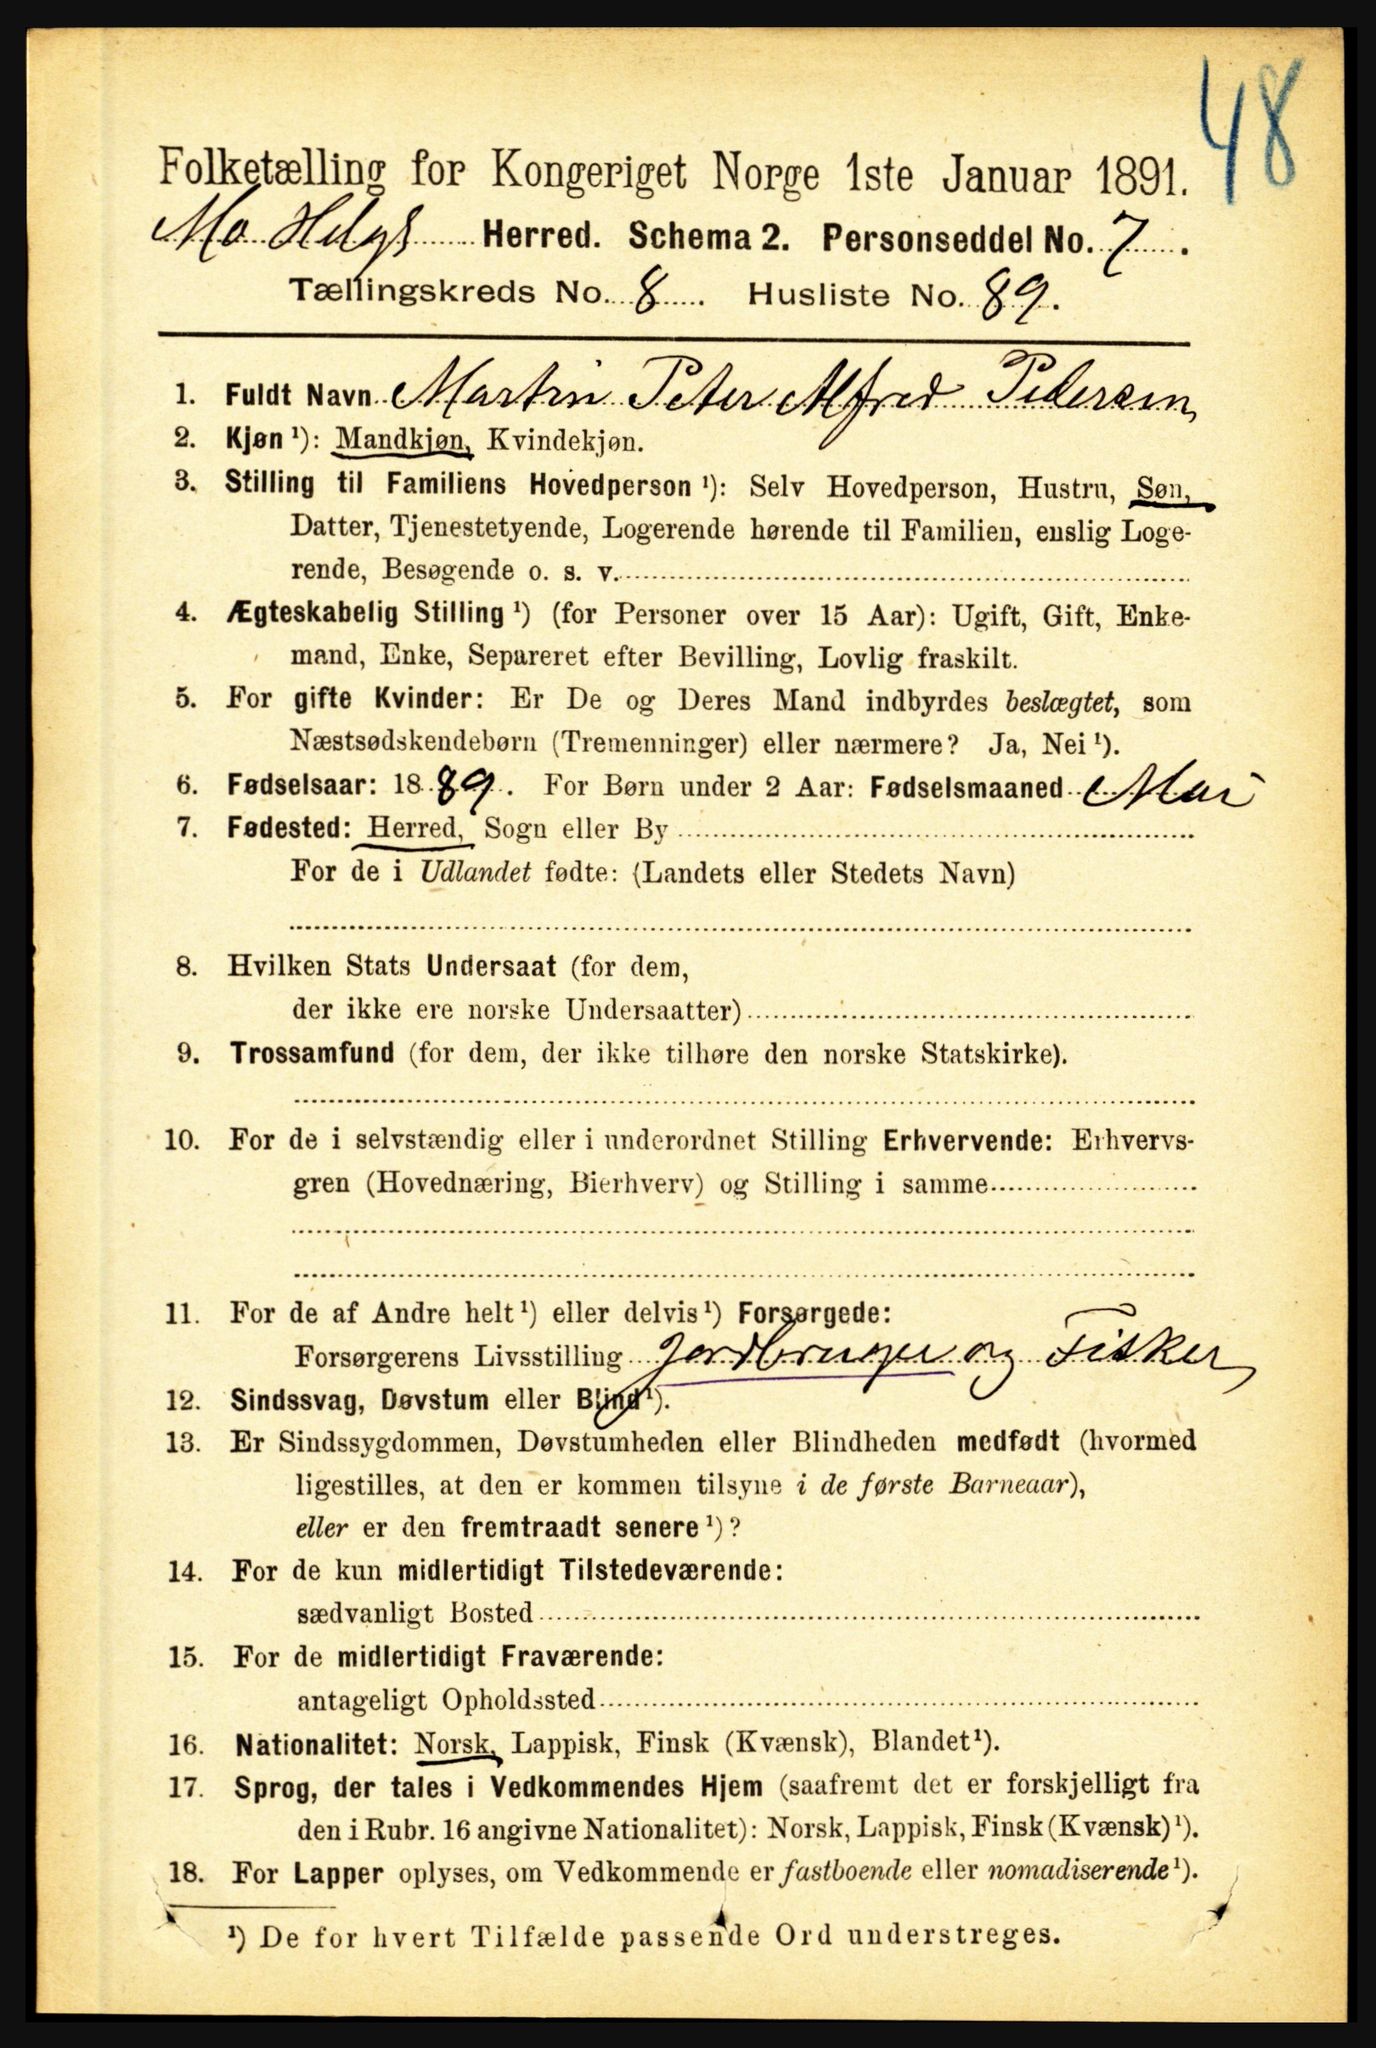 48
Folketælling for Kongeriget Norge 1ste Januar 1891.
Mo Helgs Herred. Schema 2. Personseddel No. 7.
Tællingskreds No. 8. Husliste No. 89.
1. Fuldt Navn Martin Peter Alfred Pedersen
2. Kjøn ¹): Mandkjøn, Kvindekjøn.
3. Stilling til Familiens Hovedperson ¹): Selv Hovedperson, Hustru, Søn,
Datter, Tjenestetyende, Logerende hørende til Familien, enslig Loge-
rende, Besøgende o. s. v.
4. Ægteskabelig Stilling ¹) (for Personer over 15 Aar): Ugift, Gift, Enke-
mand, Enke, Separeret efter Bevilling, Lovlig fraskilt.
5. For gifte Kvinder: Er De og Deres Mand indbyrdes beslægtet, som
Næstsødskendebørn (Tremenninger) eller nærmere? Ja, Nei ¹).
6. Fødselsaar: 1889. For Børn under 2 Aar: Fødselsmaaned Mai
7. Fødested: Herred, Sogn eller By
For de i Udlandet fødte: (Landets eller Stedets Navn)
8. Hvilken Stats Undersaat (for dem,
der ikke ere norske Undersaatter)
9. Trossamfund (for dem, der ikke tilhøre den norske Statskirke).
10. For de i selvstændig eller i underordnet Stilling Erhvervende: Erhvervs-
gren (Hovednæring, Bierhverv) og Stilling i samme
11. For de af Andre helt ¹) eller delvis ¹) Forsørgede:
Forsørgerens Livsstilling Jordbruger og Fisker
12. Sindssvag, Døvstum eller Blind ¹).
13. Er Sindssygdommen, Døvstumheden eller Blindheden medfødt (hvormed
ligestilles, at den er kommen tilsyne i de første Barneaar),
eller er den fremtraadt senere ¹)?
14. For de kun midlertidigt Tilstedeværende:
sædvanligt Bosted
15. For de midlertidigt Fraværende:
antageligt Opholdssted
16. Nationalitet: Norsk, Lappisk, Finsk (Kvænsk), Blandet ¹).
17. Sprog, der tales i Vedkommendes Hjem (saafremt det er forskjelligt fra
den i Rubr. 16 angivne Nationalitet): Norsk, Lappisk, Finsk (Kvænsk) ¹).
18. For Lapper oplyses, om Vedkommende er fastboende eller nomadiserende ¹).
¹) De for hvert Tilfælde passende Ord understreges.